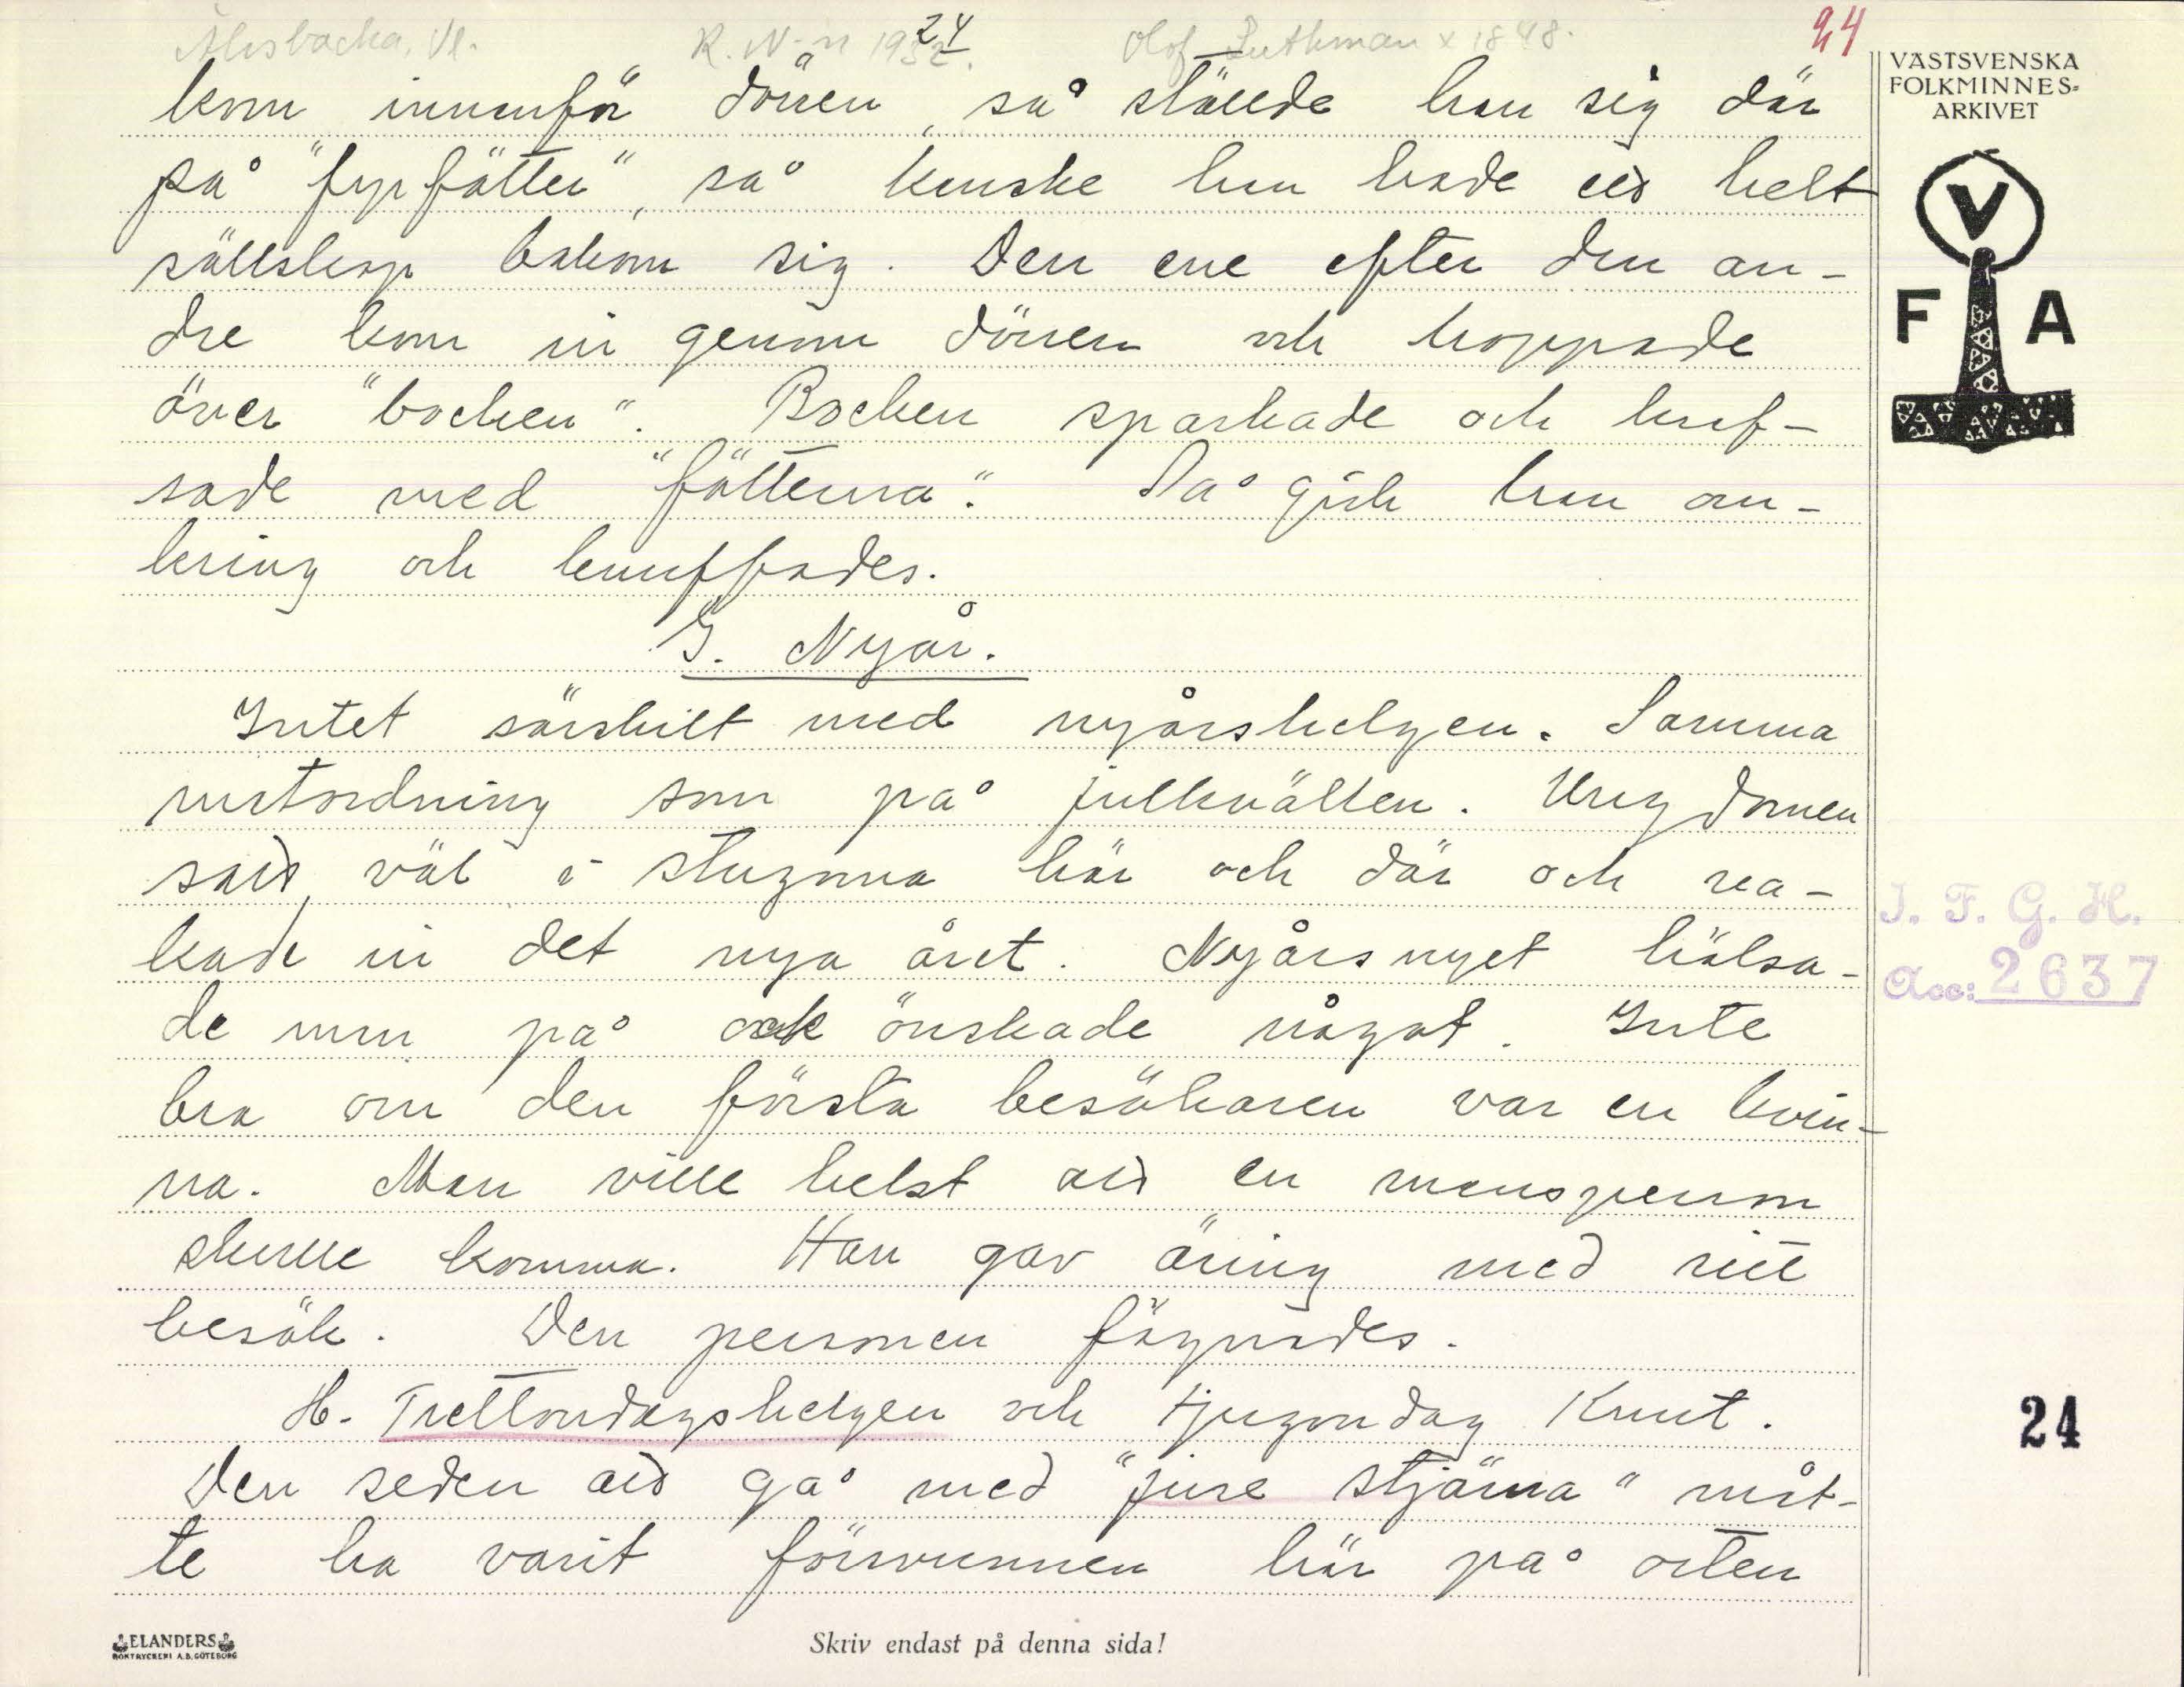 24
24
R. N-n 1932.
Olof Luthman x 1848.
VÄSTSVENSKA
FOLKMINNES-
ARKIVET
V
F A
kom innanför dörren, så ställde han sig där
på "fyrfötter", så kanske han hade ett helt
sällskap bakom sig. Den ene efter den an-
dre kom in genom dörren och hoppade
över "bocken". Bocken sparkade och
sade med "fötterna". Då gick han om-
kring och knuffades.
G. Nyår.
Intet särskilt med nyårshelgen. Samma
matordning som på julkvällen. Ungdomen
satt väl i stugorna här och där och va-
kade in det nya året. Nyårsnyet hälsa-
de man på och önskade något. Inte
bra om den första besökaren var en kvin-
na. Man ville helst att en mansperson
skulle komma. Han gav äring med sitt
besök. Den personen fägnades.
H. Trettondagshelgen och tjugondag Knut.
Den seden att gå med "jule stjärna" måt-
te ha varit försvunnen här på orten
I. F. G. H.
Acc: 2637
24
ELANDERS
BOKTRYCKERI A.B. GÖTEBORG
Skriv endast på denna sida!